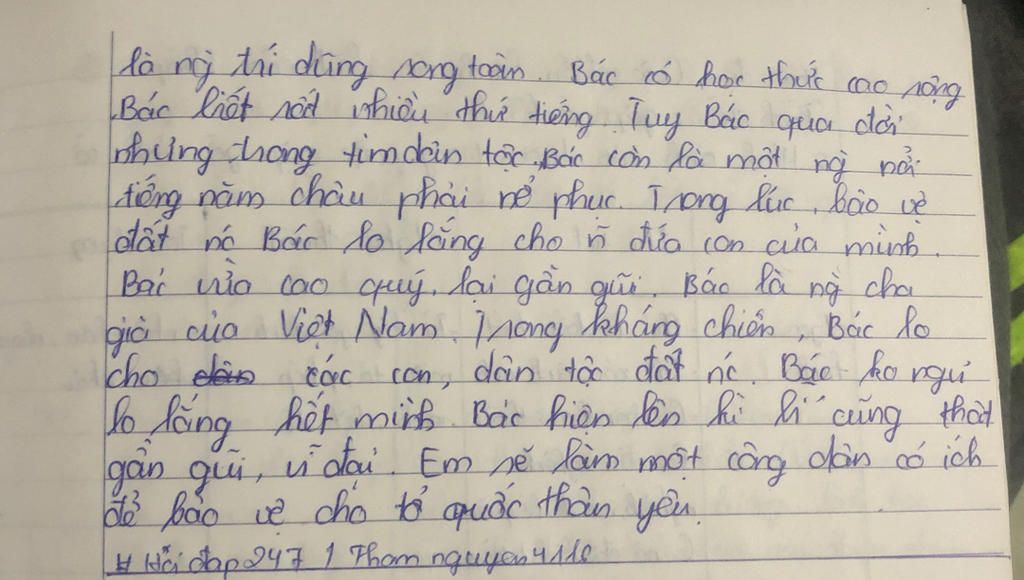 là ng` trí dũng song toàn. Bác có học thức cao rộng
Bác biết rất nhiều thứ tiếng. Tuy Bác qua đời
nhưng trong tim dân tộc. Bác còn là một ng` nổi
tiếng năm châu phải nể phục. Trong lúc, bảo vệ
đất nc Bác lo lắng cho n~ đứa con của mình.
Bác vừa cao quý, lại gần gũi. Bác là ng` cha
già của Việt Nam. Trong kháng chiến, Bác lo
cho các con, dân tộc đất nc. Bác ko ngủ
lo lắng hết mình. Bác hiện lên kì vĩ cũng thật
gần gũi, vĩ đại. Em sẽ làm một công dân có ích
để bảo vệ cho tổ quốc thân yêu.
# Hỏi đáp 247 / Thamnguyen4118